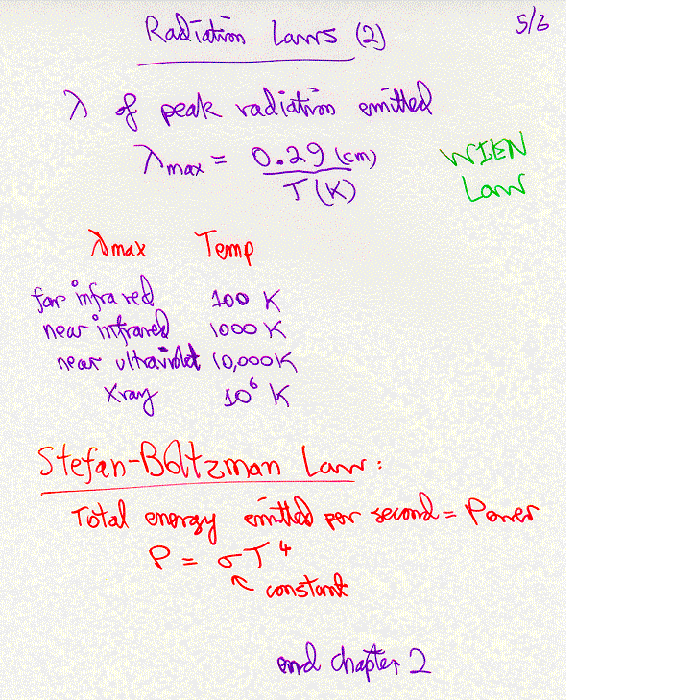 Radiation Laws (2) 5/6
λ of peak radiation emitted
λmax = 0.29 (cm) / T(K) WIEN Law
λmax Temp
far infrared 100 K
near infrared 1000 K
near ultraviolet 10,000K
Xray 10⁶ K
Stefan-Boltzman Law:
Total energy emitted per second = Power
P = σT⁴
↖ constant
end chapter 2